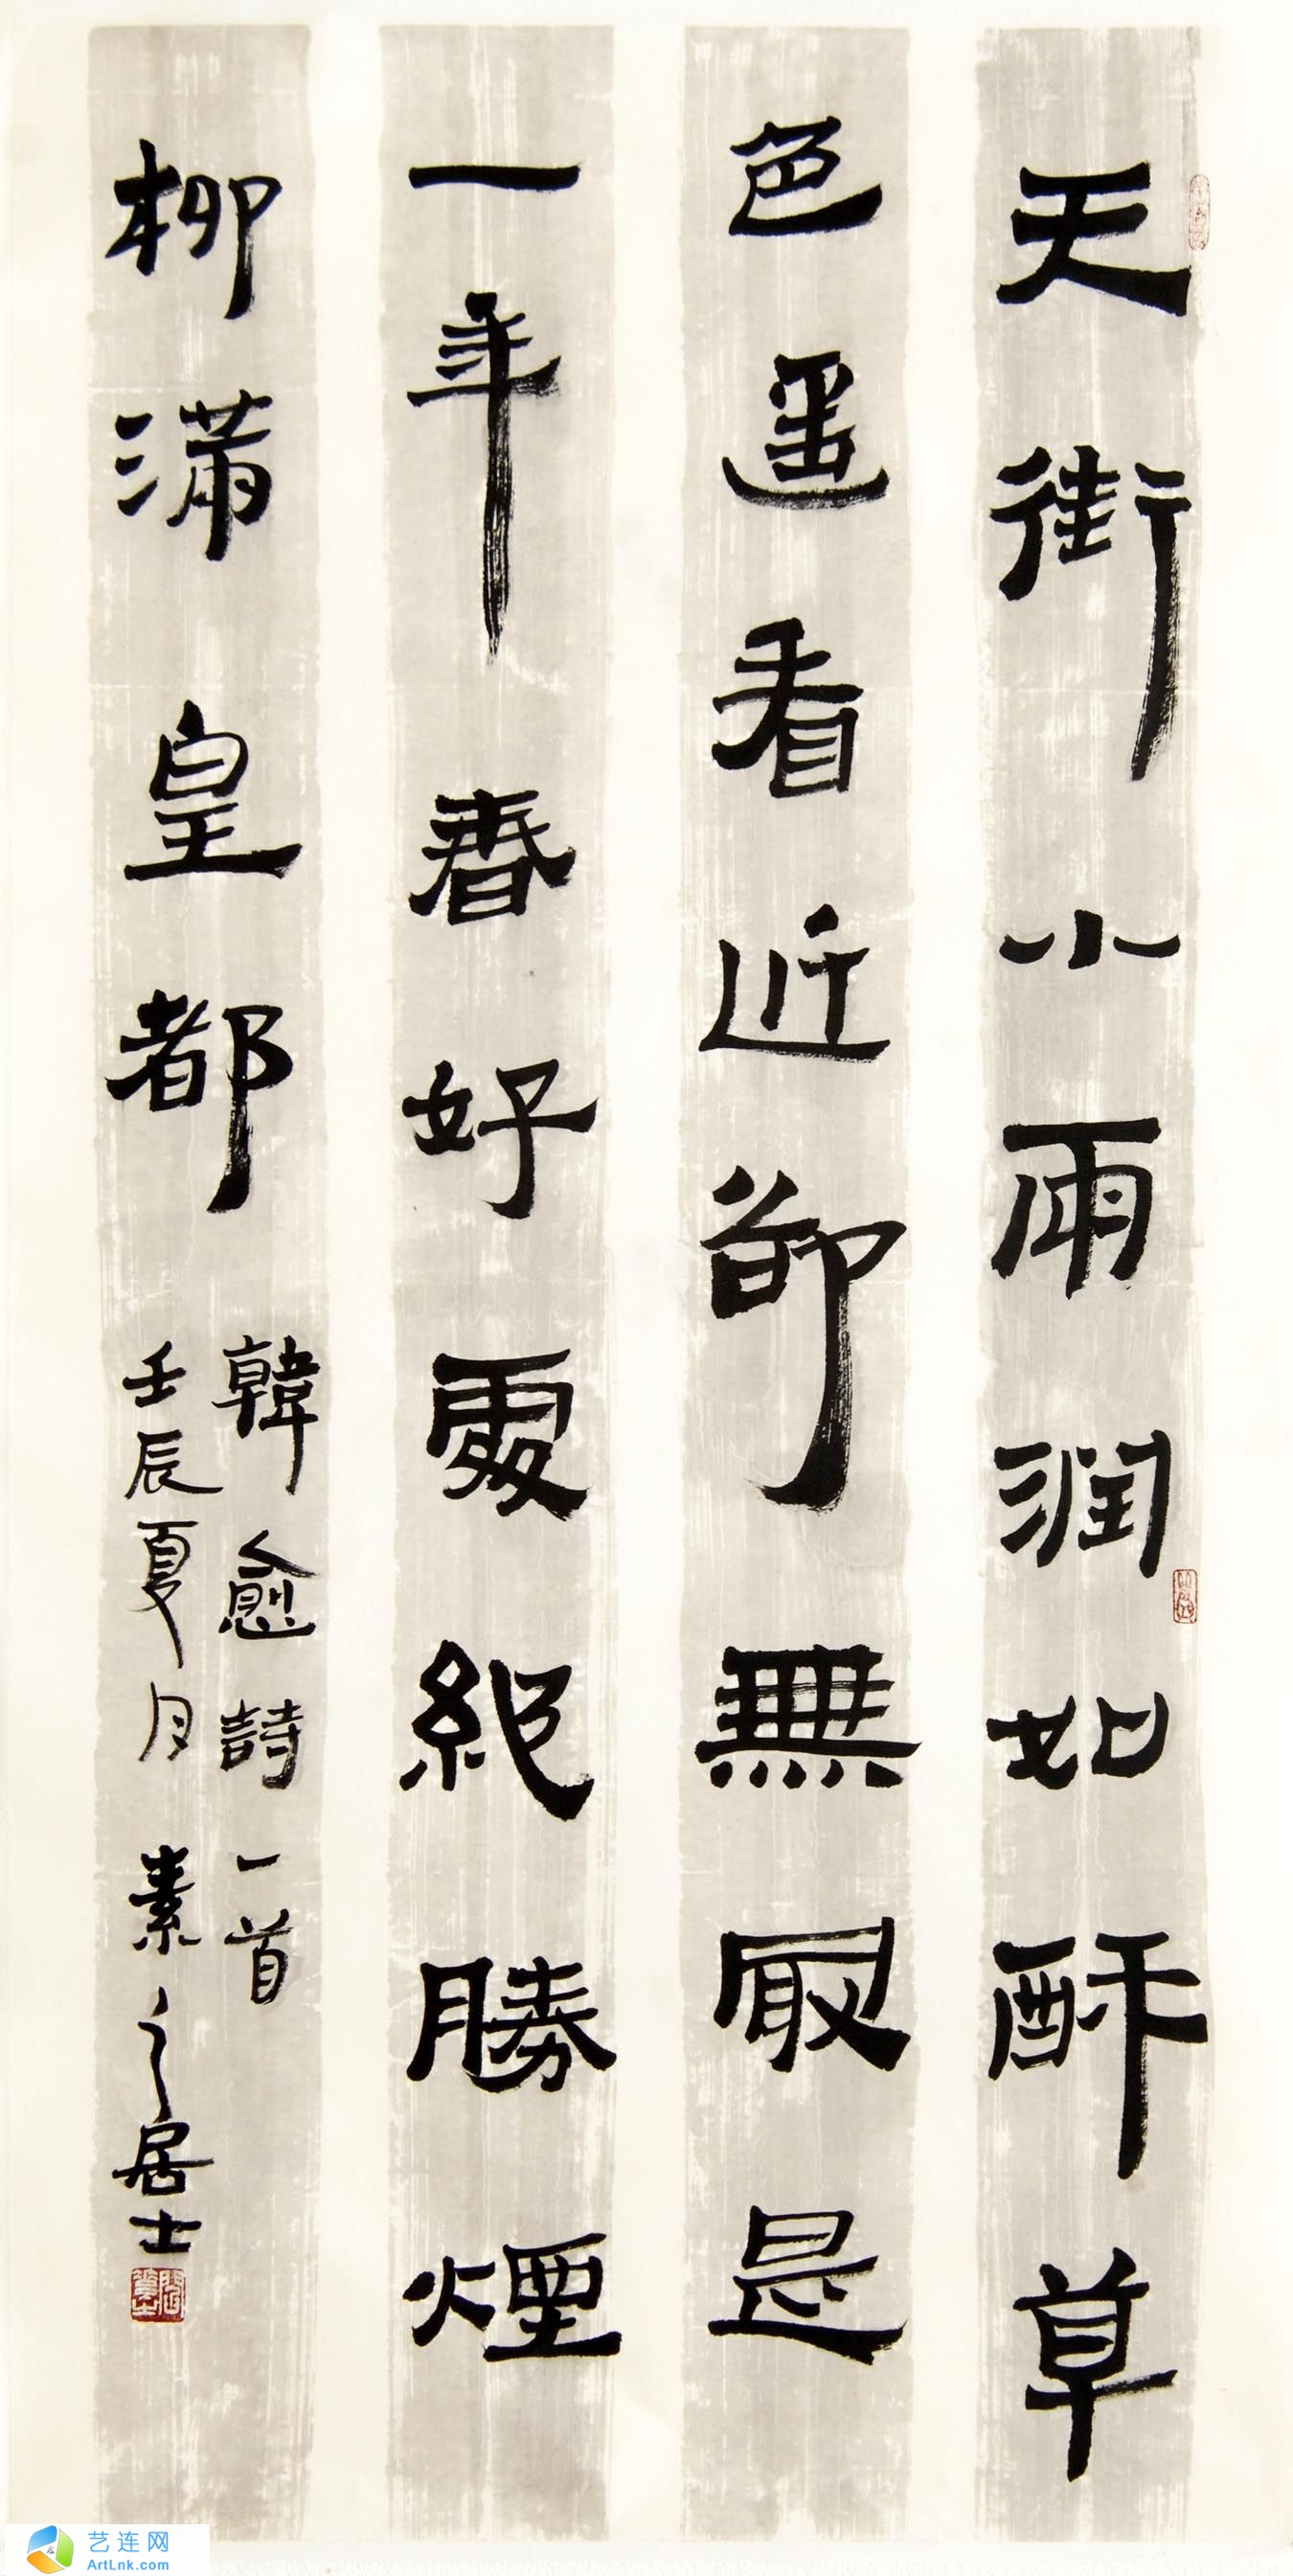 天街小雨润如酥草
色遥看近却無最是
一年春好處絕勝煙
柳满皇都
韓愈詩一首
壬辰夏月素之居士
艺连网
ArtLnk.com